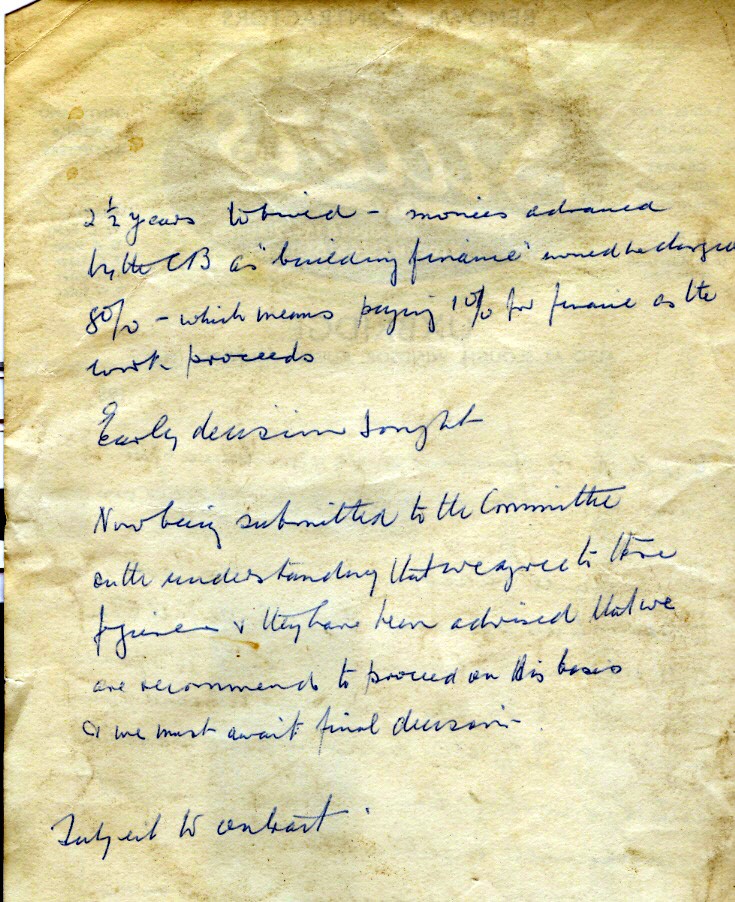 REMOVAL CONTRACTORS
2 ½ years to build - monies advanced
by the CB as "building finance" would be charged
8% - which means paying 10% for finance as the
work proceeds
Early decision sought
Now being submitted to the Committee
on the understanding that we agree to these
figures & they have been advised that we
are recommend to proceed on this basis
& we must await final decision
Subject to contract.